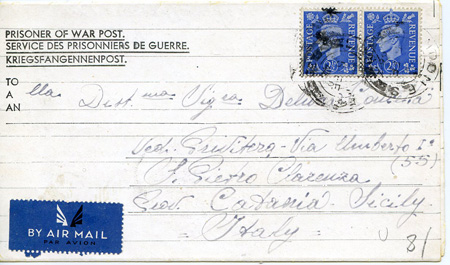 PRISONER OF WAR POST.
SERVICE DES PRISONNIERS DE GUERRE.
KRIEGSFANGENNENPOST.
POSTAGE REVENUE
2½D
POSTAGE REVENUE
2½D
TO
A
AN
alla Dist.ma Sig.ra
Ved. Via Umberto I°
(55)
S. Pietro Clarenza
Prov Catania Sicily
Italy
BY AIR MAIL
PAR AVION
8/